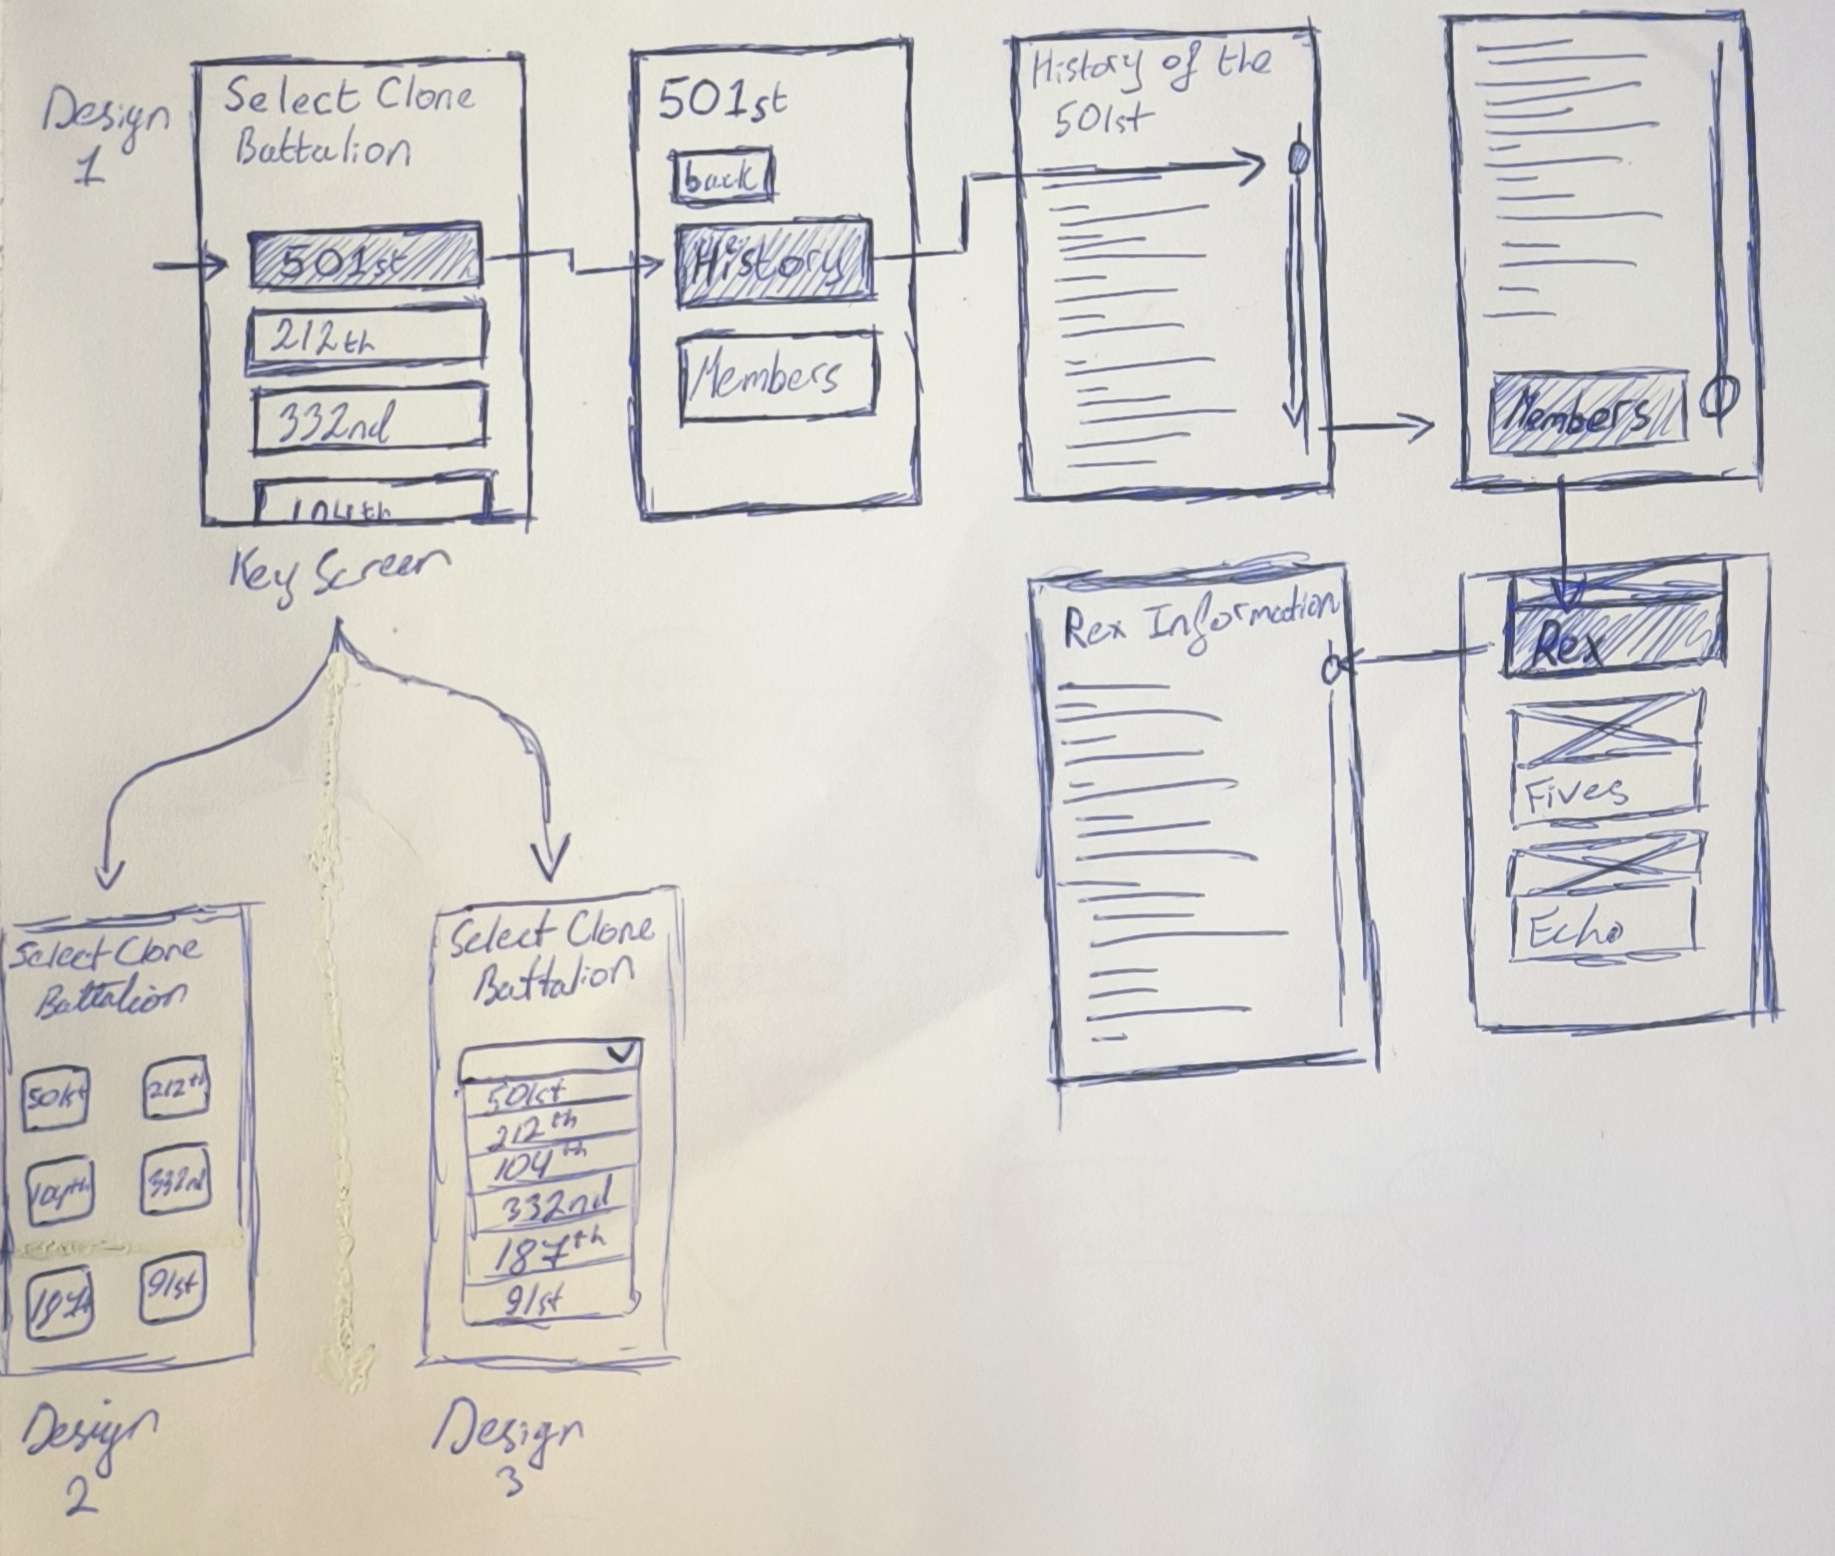 Design
1
Select Clone
Battalion
501st
212th
332nd
104th
Key Screen
501st
back
History
Members
History of the
501st
Members
Rex
Fives
Echo
Rex Information
Select Clone
Battalion
501st
212th
104th
332nd
187th
91st
Design
2
Select Clone
Battalion
501st
212th
104th
332nd
187th
91st
Design
3